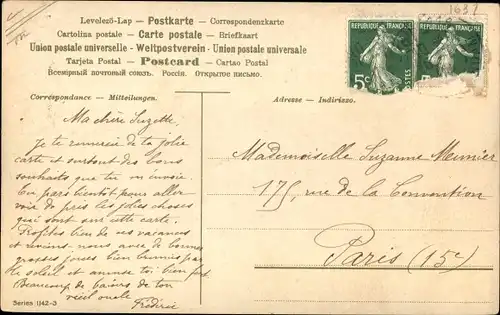 Levelező-Lap — Postkarte — Correspondenzkarte
Cartolina postale — Carte postale — Briefkaart
Union postale universelle — Weltpostverein — Union postale universale
Tarjeta Postal — Postcard — Cartao Postal
Всемірный почтовый союзъ. Россія. Открытое письмо.
1631
REPUBLIQUE FRANÇAISE
5c
POSTES
REPUBLIQUE FRANÇAISE
Correspondance — Mitteilungen.
Adresse — Indirizzo.
Ma chère Suzette,
Je te remercie de ta jolie
carte et surtout des bons
souhaits que tu m'envoie.
Tu pars bientôt pour aller
voir de près les jolies choses
qui sont sur cette carte.
Profites bien de ces vacances
et reviens-nous avec de bonnes
grosses joues bien brunies par
le soleil et amuse toi bien fort
Beaucoup de baisers de ton
vieil oncle
Frédéric
Mademoiselle Suzanne Meunier
175, rue de la Convention
Paris (15e)
Series 1142-3